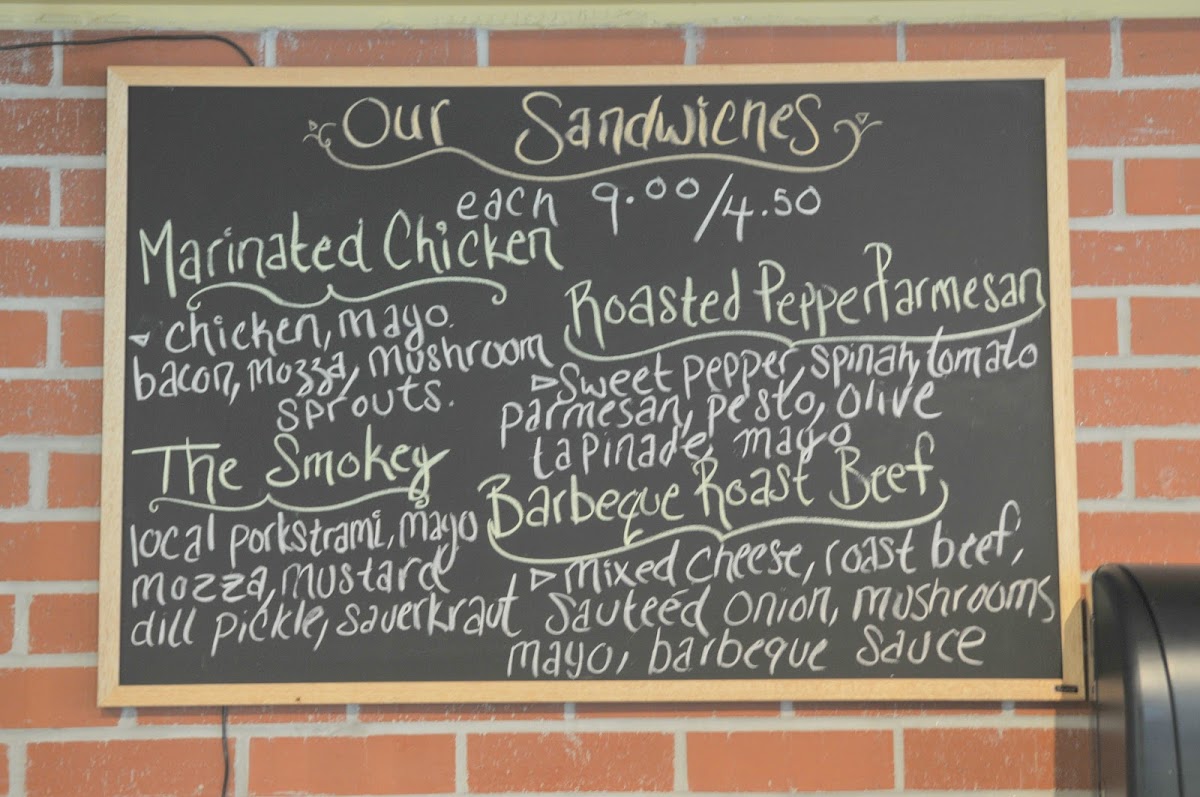 Our Sandwiches
each 9.00/4.50
Marinated Chicken
chicken, mayo.
bacon, mozza, mushroom
sprouts.
The Smokey
local porkstrami, mayo
mozza, mustard
dill pickle, sauerkraut
Roasted Pepper Parmesan
Sweet pepper, spinah, tomato
parmesan, pesto, olive
tapinade, mayo
Barbeque Roast Beef
mixed cheese, roast beef,
sauteéd onion, mushrooms
mayo, barbeque sauce